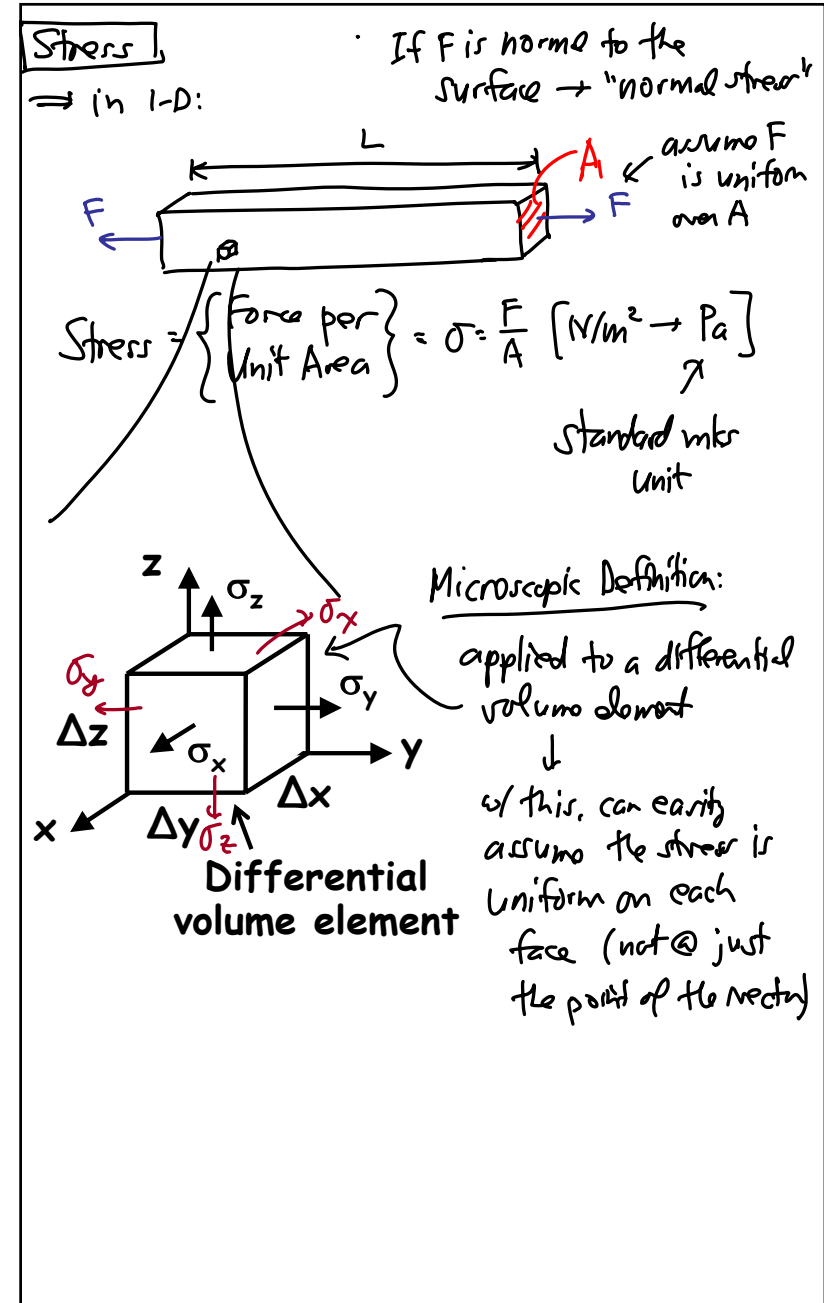 Stress
⇒ in 1-D:
· If F is normal to the
surface → "normal stress"
L
A
assume F
is uniform
over A
F
F
Stress = {Force per
Unit Area} = σ = F/A [N/m² → Pa]
standard mks
unit
z
σz
σx
σy
σy
Δz
σx
y
Δx
x
Δy
σz
Differential
volume element
Microscopic Definition:
applied to a differential
volume element
↓
w/ this, can easily
assume the stress is
uniform on each
face (not @ just
the point of the vector)